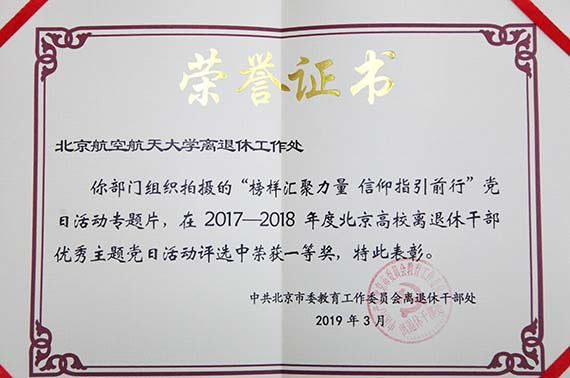 荣誉证书
北京航空航天大学离退休工作处
你部门组织拍摄的“榜样汇聚力量 信仰指引前行”党
日活动专题片，在 2017—2018 年度北京高校离退休干部
优秀主题党日活动评选中荣获一等奖，特此表彰。
中共北京市委教育工作委员会离退休干部处
2019 年 3 月